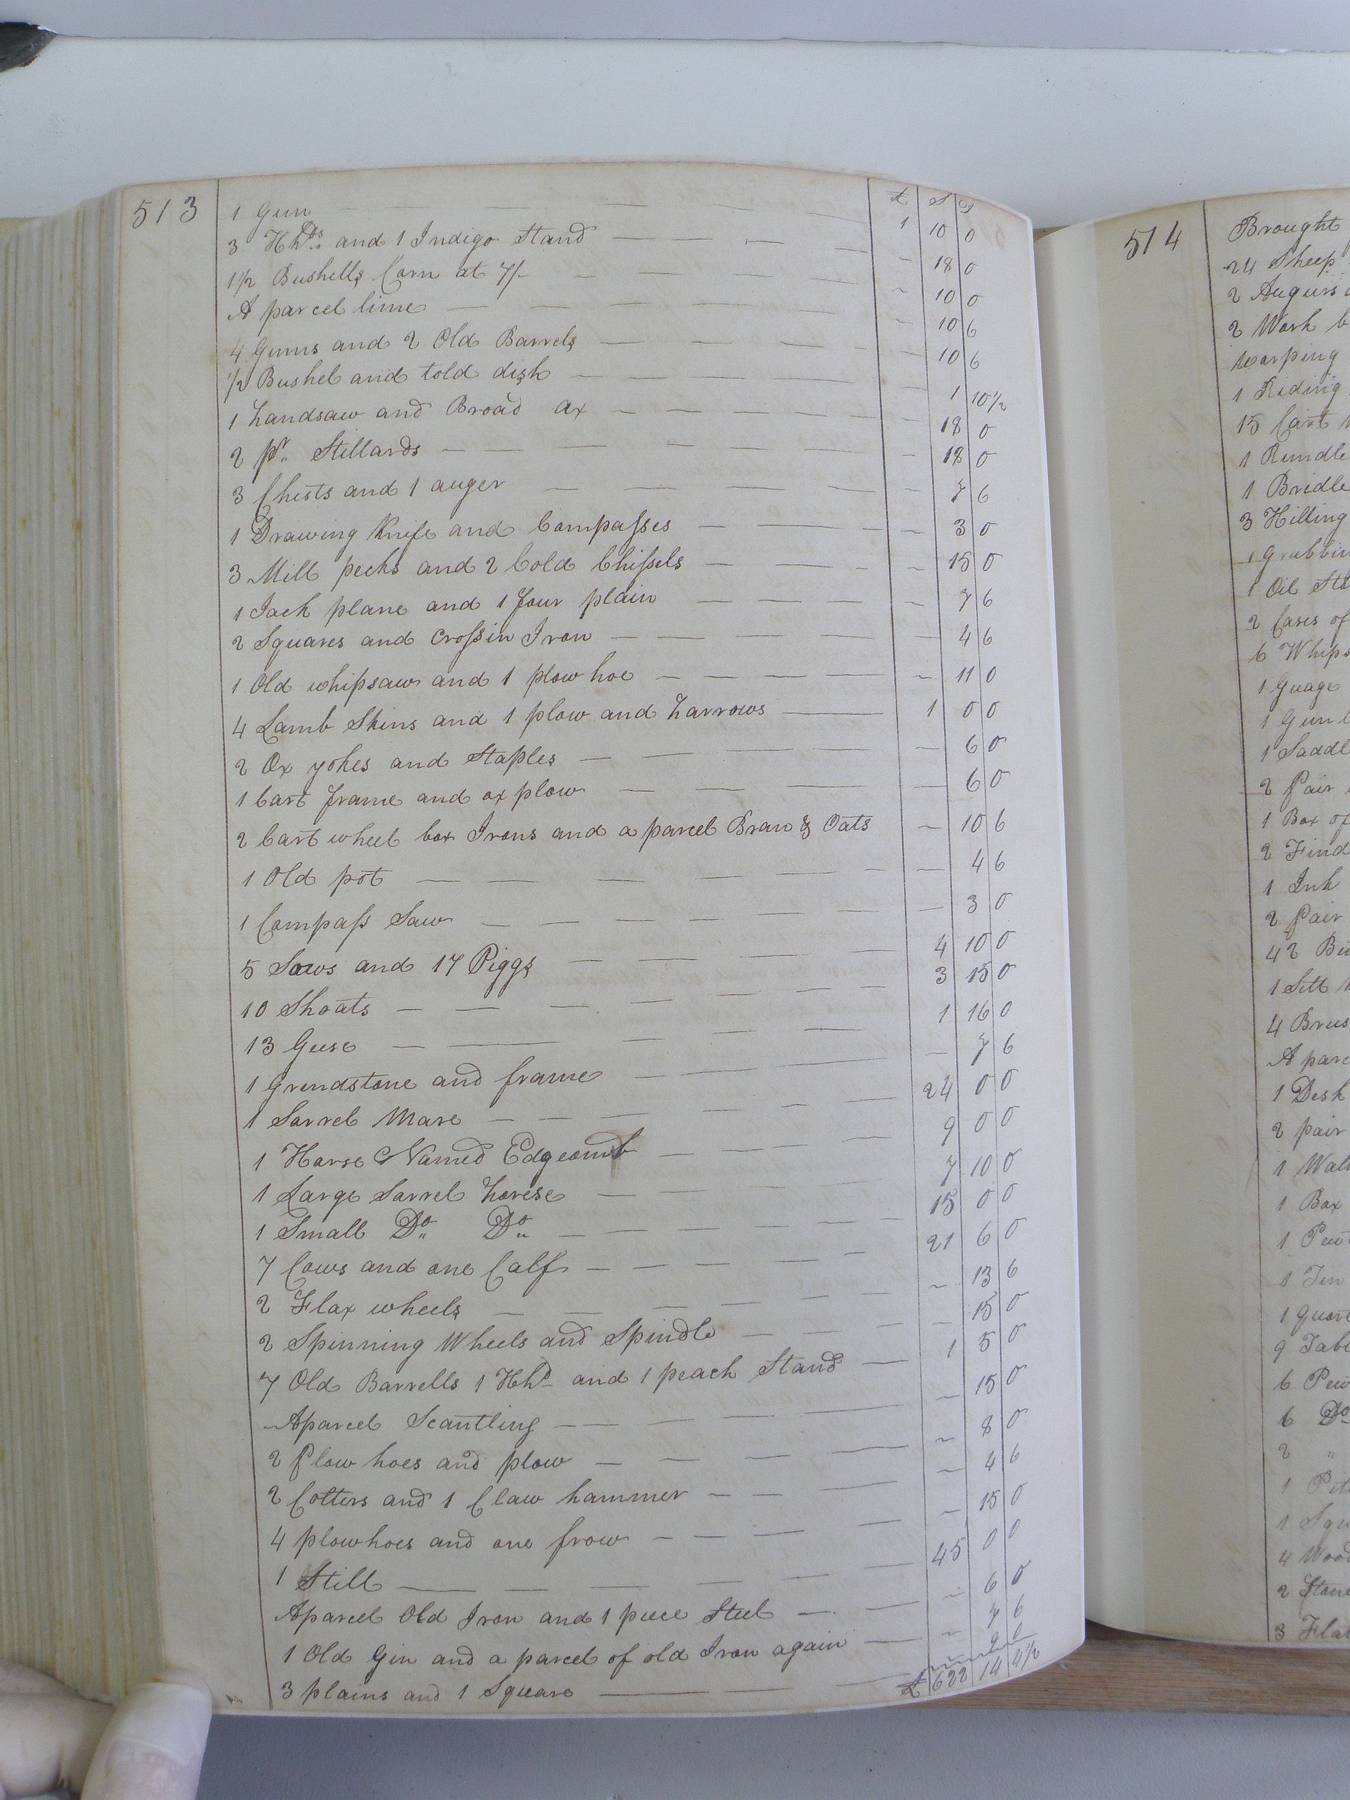 513
£ S D
1 Gun — 1 10 0
3 Hhds and 1 Indigo Stand — 18 0
1½ Bushells Corn at 7/- — 10 0
A parcel lime — 10 6
4 Gums and 2 Old Barrels — 10 6
½ Bushel and told dish — 1 10½
1 handsaw and Broad ax — 18 0
2 pr. Stillards — 18 0
3 Chists and 1 auger — 7 6
1 Drawing Knife and Compasses — 3 0
3 Mill pecks and 2 Cold Chissels — 15 0
1 Jack plane and 1 four plain — 7 6
2 Squares and Crossin Iron — 4 6
1 Old whipsaw and 1 plow hoe — 11 0
4 Lamb Skins and 1 plow and harrows — 1 0 0
2 Ox yokes and Staples — 6 0
1 Cart frame and ox plow — 6 0
2 Cart wheel box Irons and a parcel Bran & Oats — 10 6
1 Old pot — 4 6
1 Compass Saw — 3 0
5 Sows and 17 Piggs — 4 10 0
10 Shoats — 3 15 0
13 Geese — 1 16 0
1 Grindstone and frame — 7 6
1 Sorrel Mare — 24 0 0
1 Horse Named Edgecomb — 9 0 0
1 Large Sorrel horse — 7 10 0
1 Small Do Do — 15 0 0
7 Cows and one Calf — 21 6 0
2 Flax wheels — 13 6
2 Spinning Wheels and Spindle — 15 0
7 Old Barrells 1 Hhd and 1 peach Stand — 1 5 0
Aparcel Scantling — 15 0
2 Plow hoes and plow — 8 0
2 Colters and 1 Claw hammer — 4 6
4 plowhoes and one frow — 15 0
1 Still — 45 0 0
Aparcel Old Iron and 1 piece Steel — 6 0
1 Old Gin and a parcel of old Iron again — 7 6
3 plains and 1 Square —
£ 622 14 4½
514
Brought
24 Sheep
2 Augurs
2 Work
warping
1 Riding
15 Cart
1 Rundle
1 Bridle
3 Hilling
1
1 Oil
2 Cases of
6
1 Guage
1
1
2 Pair
1 Box of
2
1 Ink
2 Pair
42
1 Sett
4
A
1 Desk
2 pair
1
1 Box
1
1 Tin
1
9
6
6 Do
2 "
1
1
4
2
3